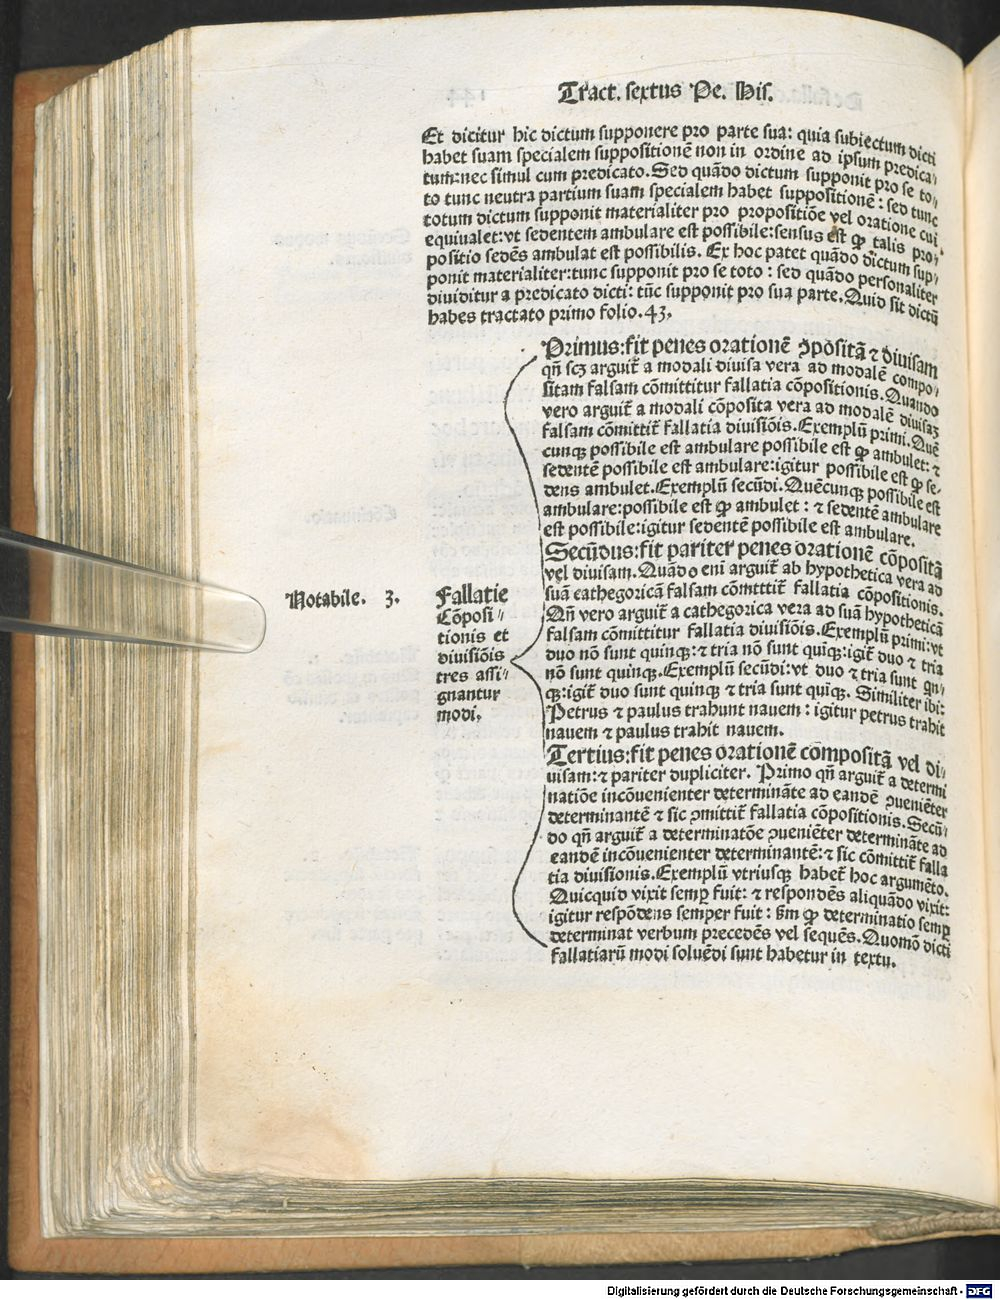 Tract. sextus Pe. His.
Et dicitur hic dictum supponere pro parte sua: quia subiectum dicti
habet suam specialem suppositionē non in ordine ad ipsum predica/
tum:nec simul cum predicato. Sed quādo dictum supponit pro se to/
to tunc neutra partium suam specialem habet suppositionē: sed tunc
totum dictum supponit materialiter pro propositiōe vel oratione cui
equiualet:vt sedentem ambulare est possibile:sensus est ꝙ talis pro/
positio sedēs ambulat est possibilis. Ex hoc patet quādo dictum sup/
ponit materialiter:tunc supponit pro se toto: sed quādo personaliter
diuiditur a predicato dicti: tūc supponit pro sua parte. Quid sit dictū
habes tractato primo folio.43.
Notabile. 3.
Fallatie
Cōposi/
tionis et
diuisiōis
tres assi/
gnantur
modi.
Primus:fit penes orationē ꝯpositā ⁊ diuisam
qñ scꝫ arguit̄ a modali diuisa vera ad modalē compo/
sitam falsam cōmittitur fallatia cōpositionis. Quando
vero arguit̄ a modali cōposita vera ad modalē diuisaꝫ
falsam cōmittit̄ fallatia diuisiōis. Exemplū primi. Quē
cunqꝫ possibile est ambulare possibile est ꝙ ambulet: ⁊
sedentē possibile est ambulare:igitur possibile est ꝙ se/
dens ambulet. Exemplū secūdi. Quēcunqꝫ possibile est
ambulare:possibile est ꝙ ambulet: ⁊ sedentē ambulare
est possibile:igitur sedentē possibile est ambulare.
Secūdus:fit pariter penes orationē cōpositā
vel diuisam. Quādo eni arguit̄ ab hypothetica vera ad
suā cathegoricā falsam cōmtttit̄ fallatia cōpositionis.
Qñ vero arguit̄ a cathegorica vera ad suā hypotheticā
falsam cōmittitur fallatia diuisiōis. Exemplū primi:vt
duo nō sunt quinqꝫ: ⁊ tria nō sunt quīqꝫ:igit̄ duo ⁊ tria
nō sunt quinqꝫ. Exemplū secūdi:vt duo ⁊ tria sunt qn/
qꝫ:igit̄ duo sunt quinqꝫ ⁊ tria sunt quīqꝫ. Similiter ibi:
Petrus ⁊ paulus trahunt nauem: igitur petrus trahit
nauem ⁊ paulus trahit nauem.
Tertius:fit penes orationē compositā vel di/
uisam:⁊ pariter dupliciter. Primo qñ arguit̄ a determi
natiōe incōuenienter determināte ad eandē ꝯueniēter
determinantē ⁊ sic ꝯmittit̄ fallatia cōpositionis. Secū/
do qñ arguit̄ a determinatōe ꝯueniēter determināte ad
eandē incōuenienter determinantē:⁊ sic cōmittit̄ falla
tia diuisionis. Exemplū vtriusqꝫ habet̄ hoc argumēto.
Quicquid vixit semꝑ fuit: ⁊ respondēs aliquādo vixit:
igitur respōdens semper fuit: ẜm ꝙ determinatio semꝑ
determinat verbum precedēs vel sequēs. Quomō dicti
fallatiarū modi soluēdi sunt habetur in textu.
Digitalisierung gefördert durch die Deutsche Forschungsgemeinschaft - DFG